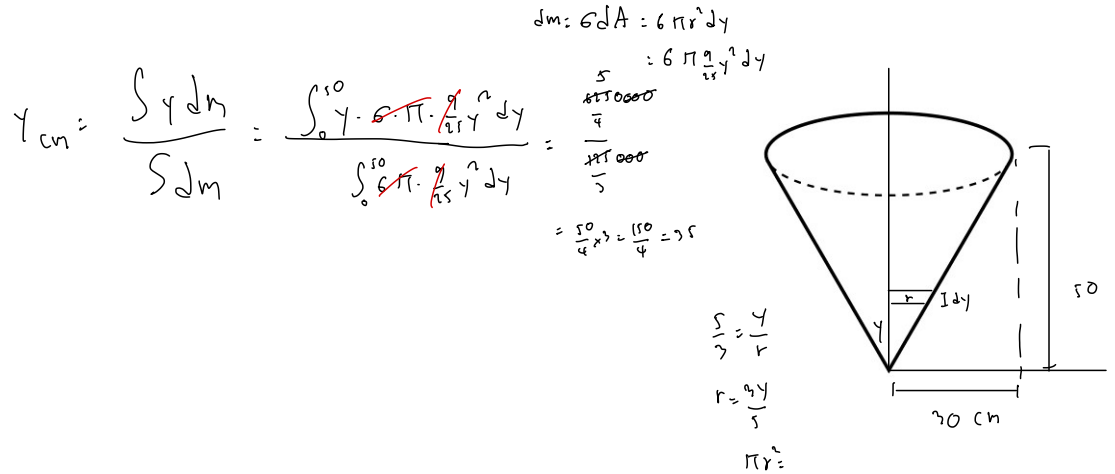 dm = σdA = σπr²dy
= σπ 9/25 y² dy
Y cm = ∫y dm / ∫dm = ∫₀⁵⁰ y · σ · π · 9/25 y² dy / ∫₀⁵⁰ σ · π · 9/25 y² dy = 5 6250000/4 / 125000/3
= 50/4 × 3 = 150/4 = 35
r
I dy
y
50
30 cm
5/3 = y/r
r = 3y/5
πr² =